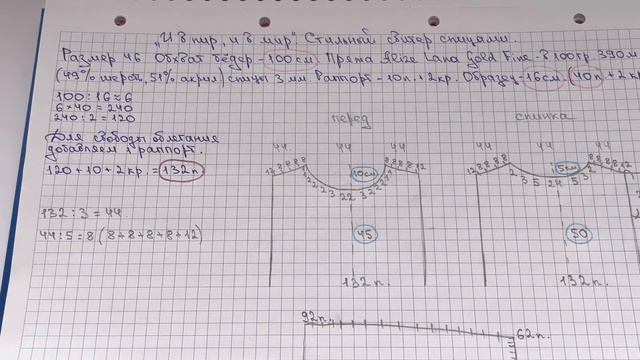 "И в пир, и в мир". Стильный свитер спицами.
Размер 46 Обхват бёдер - 100 см. Пряжа Alize Lana Gold Fine - в 100 гр. 390 м
(49% шерсть, 51% акрил) спицы 3 мм. Раппорт - 10 п. + 2 кр. Образец - 16 см (40 п. + 2 кр
100 : 16 ≈ 6
6 × 40 = 240
240 : 2 = 120
Для свободы облегания
добавляем 1 раппорт.
120 + 10 + 2 кр. = 132 п
132 : 3 = 44
44 : 5 = 8 (8 + 8 + 8 + 8 + 12)
перед
44 44 44
12 8 8 8 8 8 8 8 8 12
10 см
2 2 3 22 3 2 2
45
132 п.
спинка
44 44 44
12 8 8 8 8 8 8 8 8 12
5 см
2 3 5 24 5 3 2
50
132 п.
92 п.
62 п.